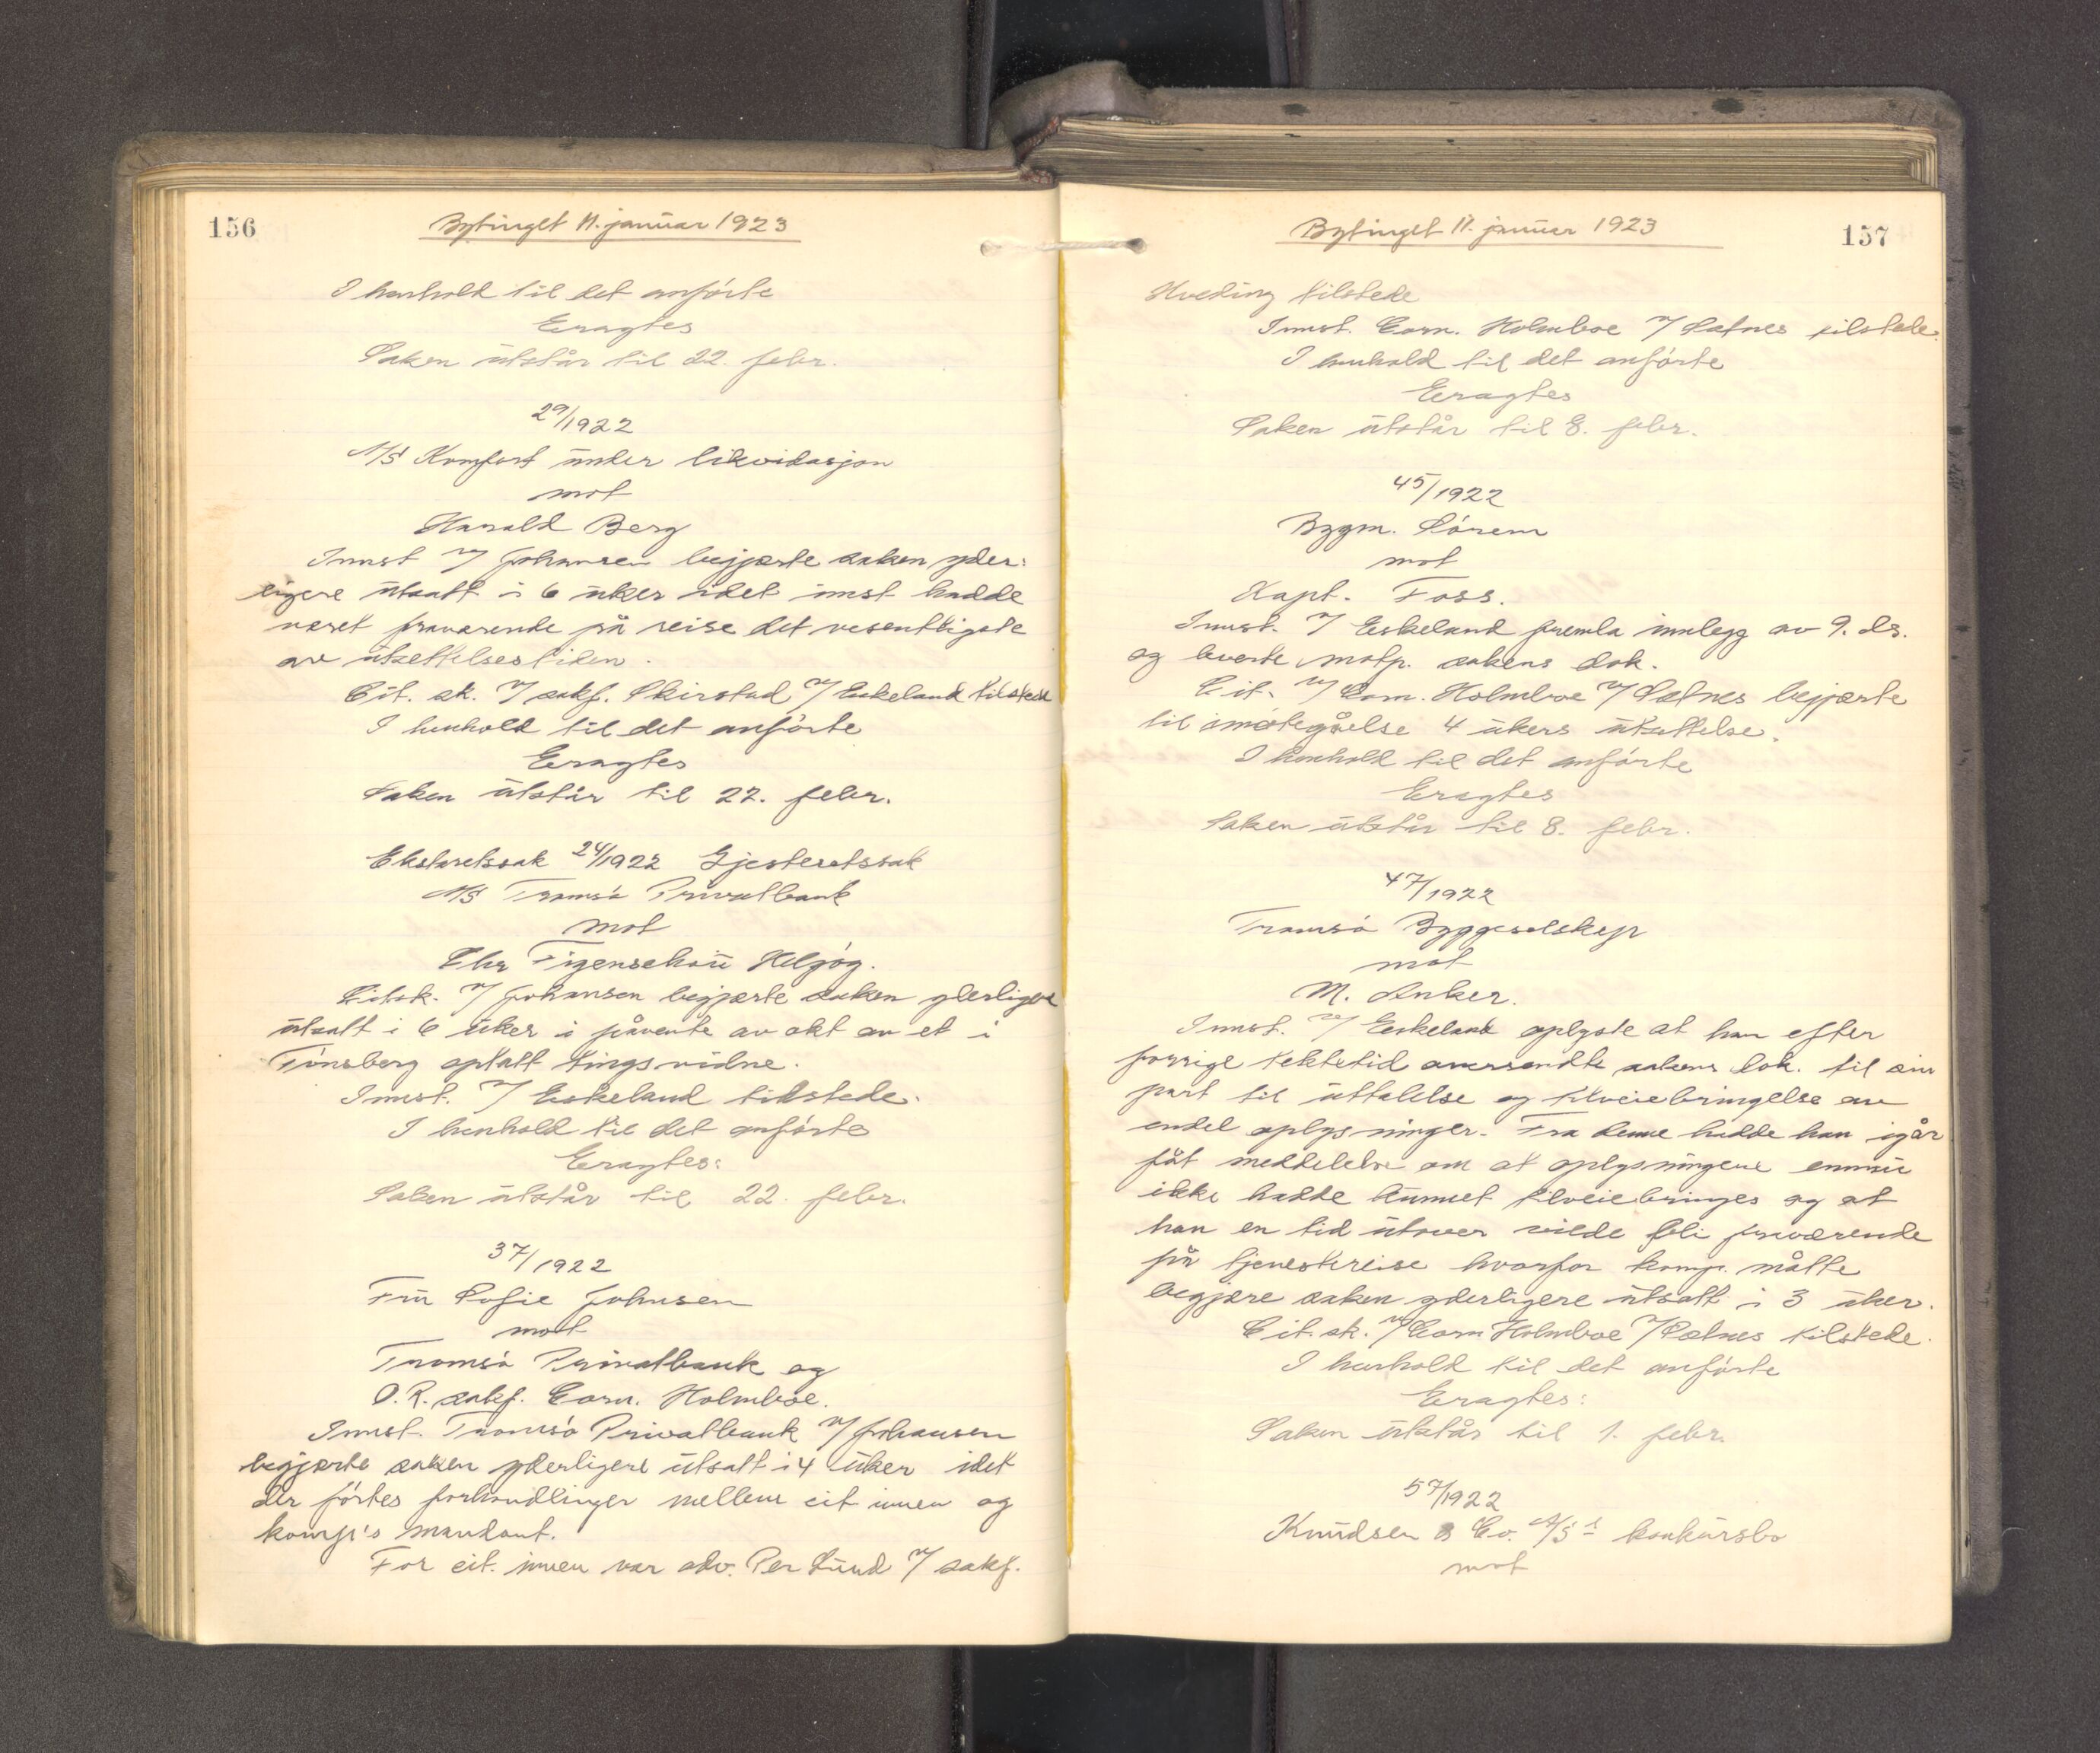 156
Bytinget 11. januar 1923
I henhold til det anførte
Eragtes
Saken utstår til 22. febr.
29/1922
A/S Komfort under likvidasjon
mot
Harald Berg
Innst v/ Johansen begjærte saken yder-
ligere utsatt i 6 uker idet innst hadde
været fraværende på reise det vesentligste
av utsettelsestiden.
Cit. sk. v/ sakf. Skirstad v/ Eskeland tilstede
I henhold til det anførte
Eragtes
Saken utstår til 22. febr.
Ekstraretssak 24/1922 Gjesteretssak
A/S Tromsø Privatbank
mot
Chr Figenschou Helgøy.
Citsk. v/ Johansen begjærte saken yderligere
utsatt i 6 uker i påvente av akt av et i
Tønsberg optatt tingsvidne.
Innst. v/ Eskeland tilstede.
I henhold til det anførte
Eragtes:
Saken utstår til 22. febr.
37/1922
Fru Sofie Johnsen
mot
Tromsø Privatbank og
O.R. sakf. Corn. Holmboe.
Innst. Tromsø Privatbank v/ Johansen
begjærte saken yderligere utsatt i 4 uker idet
der førtes forhandlinger mellem cit innen og
komp's mandant.
For cit. innen var adv. Per Lund v/ sakf.
157
Bytinget 11. januar 1923
Hveding tilstede
Innst. Corn. Holmboe v/ Sætnes tilstede.
I henhold til det anførte
Eragtes
Saken utstår til 8. febr.
45/1922
Bygm. Sørem
mot
Kapt. Foss.
Innst. v/ Eskeland fremla innlegg av 9. ds.
og leverte motp. sakens dok.
Cit. v/ Corn. Holmboe v/ Sætnes begjærte
til imøtegåelse 4 ukers utsettelse.
I henhold til det anførte
Eragtes
Saken utstår til 8. febr.
47/1922
Tromsø Byggeselskap
mot
M. Anker.
Innst. v/ Eskeland oplyste at han efter
forrige tektetid oversendte sakens dok. til sin
part til uttalelse og tilveiebringelse av
endel oplysninger. Fra denne hadde han igår
fåt meddelelse om at oplysningene ennu
ikke hadde kunnet tilveiebringes og at
han en tid utover vilde bli fraværende
på tjenestereise hvorfor komp. måtte
begjære saken yderligere utsatt i 3 uker.
Cit. sk. v/ Corn Holmboe v/ Sætnes tilstede.
I henhold til det anførte
Eragtes:
Saken utstår til 1. febr.
57/1922
Knudsen & Co. A/S s konkursbo
mot